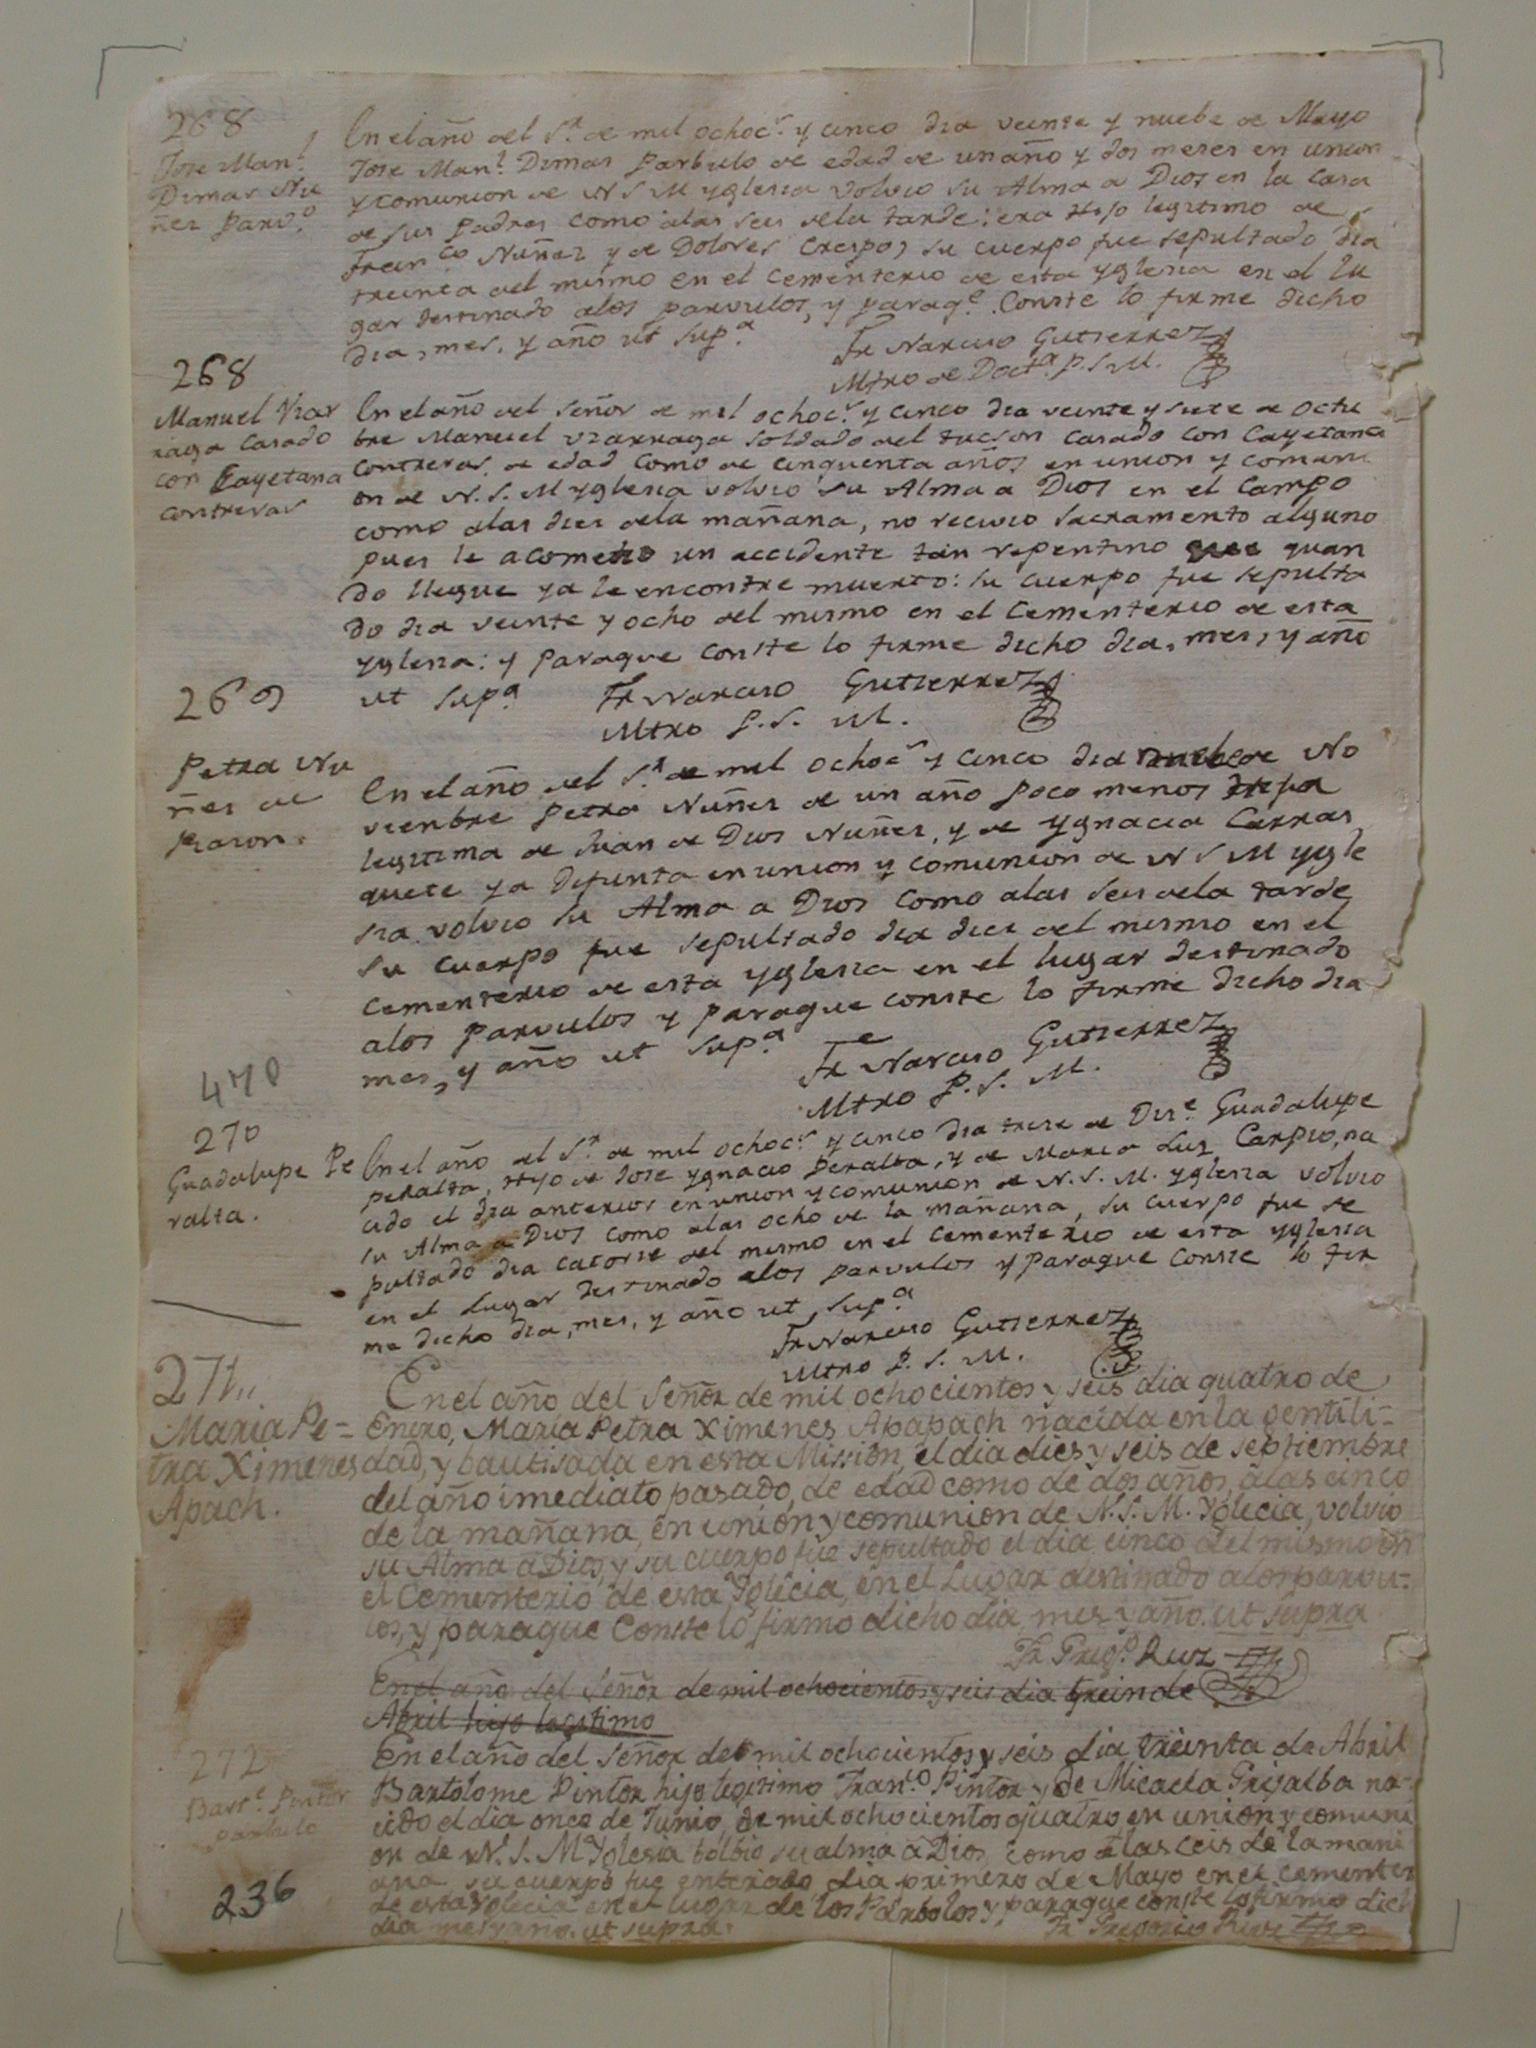 268
Jose Man.l
Dimas Nu
ñes Parv.o
En el año del S.r de mil ochoc.s y cinco dia veinte y nuebe de Mayo
Jose Man.l Dimas Parbulo de edad de un año y dos meses en union
y comunion de N S M Yglesia volvio su Alma a Dios en la casa
de sus Padres como a las seis de la tarde: era Hijo legitimo de
Fran.co Nuñez y de Dolores Crespo, su cuerpo fue sepultado dia
treinta del mismo en el cementerio de esta Yglesia en el lu
gar destinado a los parvulos, y paraq.e Conste lo firme dicho
dia, mes, y año ut sup.a
Fr Narciso Gutierrez
Mtro de Doct.a P. S. M.
268
Manuel Viar
raga casado
con Cayetana
contreras
En el año del Señor de mil ochoc.s y cinco dia veinte y siete de octu
bre Manuel Viarraga soldado del tucson casado con Cayetana
Contreras, de edad como de cinquenta años en union y comuni
on de N. S. M Yglesia volvio su Alma a Dios en el campo
como a las dies de la mañana, no recivio sacramento alguno
pues le acometio un accidente tan repentino que quan
do llegue ya le encontre muerto: su cuerpo fue sepulta
do dia veinte y ocho del mismo en el cementerio de esta
Yglesia: y paraque conste lo firme dicho dia, mes, y año
ut sup.a
Fr Narciso Gutierrez
Mtro P. S. M.
269
Petra Nu
ñes de
Rason.
En el año del S.r de mil ochoc.s y cinco dia nuebe de No
viembre Petra Nuñes de un año poco menos Hija
legitima de Juan de Dios Nuñes, y de Ygnacia Carras
quete ya difunta en union y comunion de N S M Ygle
sia volvio su Alma a Dios como a las seis de la tarde
su cuerpo fue sepultado dia dies del mismo en el
cementerio de esta Yglesia en el lugar destinado
a los parvulos y paraque conste lo firme dicho dia
mes, y año ut sup.a
Fr Narciso Gutierrez
Mtro P. S. M.
470
270
Guadalupe Pe
ralta.
En el año del S.r de mil ochoc.s y cinco dia trese de Dis.e Guadalupe
Peralta, Hijo de Jose Ygnacio Peralta, y de Maria Luz Carpio, na
cido el dia anterior en union y comunion de N. S. M. Yglesia volvio
su Alma a Dios como a las ocho de la mañana, su cuerpo fue se
pultado dia catorse del mismo en el cementerio de esta Yglesia
en el Lugar destinado a los parvulos y paraque Conste lo fir
me dicho dia, mes, y año ut sup.a
Fr Narciso Gutierrez
Mtro P. S. M.
271,,
Maria Pe=
tra Ximenes
Apach.
En el año del Señor de mil ochocientos y seis dia quatro de
Enero, Maria Petra Ximenes Apapach nacida en la gentili=
dad, y bautisada en esta Mission, el dia dies y seis de septiembre
del año imediato pasado, de edad como de dos años, a las cinco
de la mañana, en union y comunion de N. S. M. Yglecia, volvio
su Alma a Dios, y su cuerpo fue sepultado el dia cinco del mismo en
el Cementerio de esta Yglecia, en el Lugar destinado a los parvu=
los, y paraque Conste lo firmo dicho dia mes y año. ut supra
Fr Greg.o Ruiz
En el año del Señor de mil ochocientos y seis dia trein de
Abril hijo legitimo
272
Bart.e Pintor
parbulo
En el año del Señor de mil ochocientos y seis dia treinta de Abril
Bartolome Pintor hijo legitimo Fran.co Pintor y de Micaela Grijalba na=
cido el dia once de Junio, de mil ochocientos quatro en union y comuni
on de N. S. M Yglesia bolbio su alma a Dios, como a las ceis de la mañ
ana, su cuerpo fue enterado dia primero de Mayo en el cementer
de esta Yglecia en el lugar de los Parbolos y paraque conste lo firmo dich
dia mes y año. ut supra.
Fr Gregorio Ruiz
236